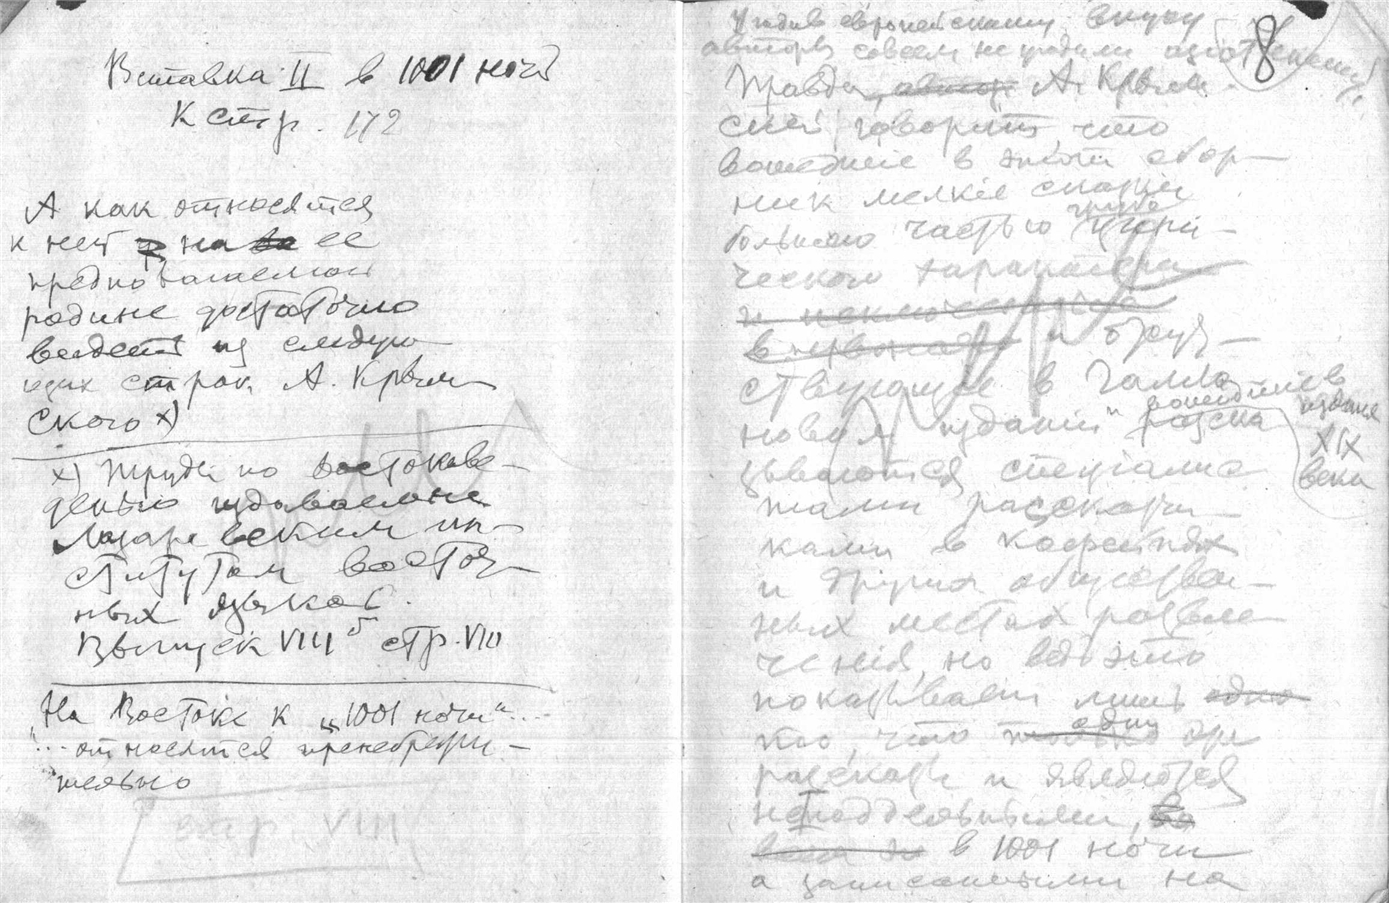 Вставка II в 1001 ночь
К стр. 172
А как относятся
к ней на ее
предполагаемой
родине достаточно
видеть из следую-
щих строк А. Крым-
ского х)
х) Труды по востокове-
дению издаваемые
Лазаревским ин-
ститутом восточ-
ных языков.
Выпуск VIII стр. VIII
На Востоке к „1001 ночи“...
"... относятся пренебрежи-
"тельно
стр. VIII
Угодив европейскому вкусу
авторы совсем не угодили
8
Правда, А. Крым-
ский говорит что
вошедшие в этот сбор-
ник мелкие сказки
большею частью грубо цини-
ческого характера
и
отсут-
ствующие в Галла-
новом издании и вошедшие в
издания
XIX
века
расска-
зываются специалис-
тами рассказчи-
ками в кофейнях
и других обществен-
ных местах развле-
чения, но ведь это
показывает лишь
то, что одни эти
рассказы и являются
неподдельными,
в 1001 ночи
а записанными на